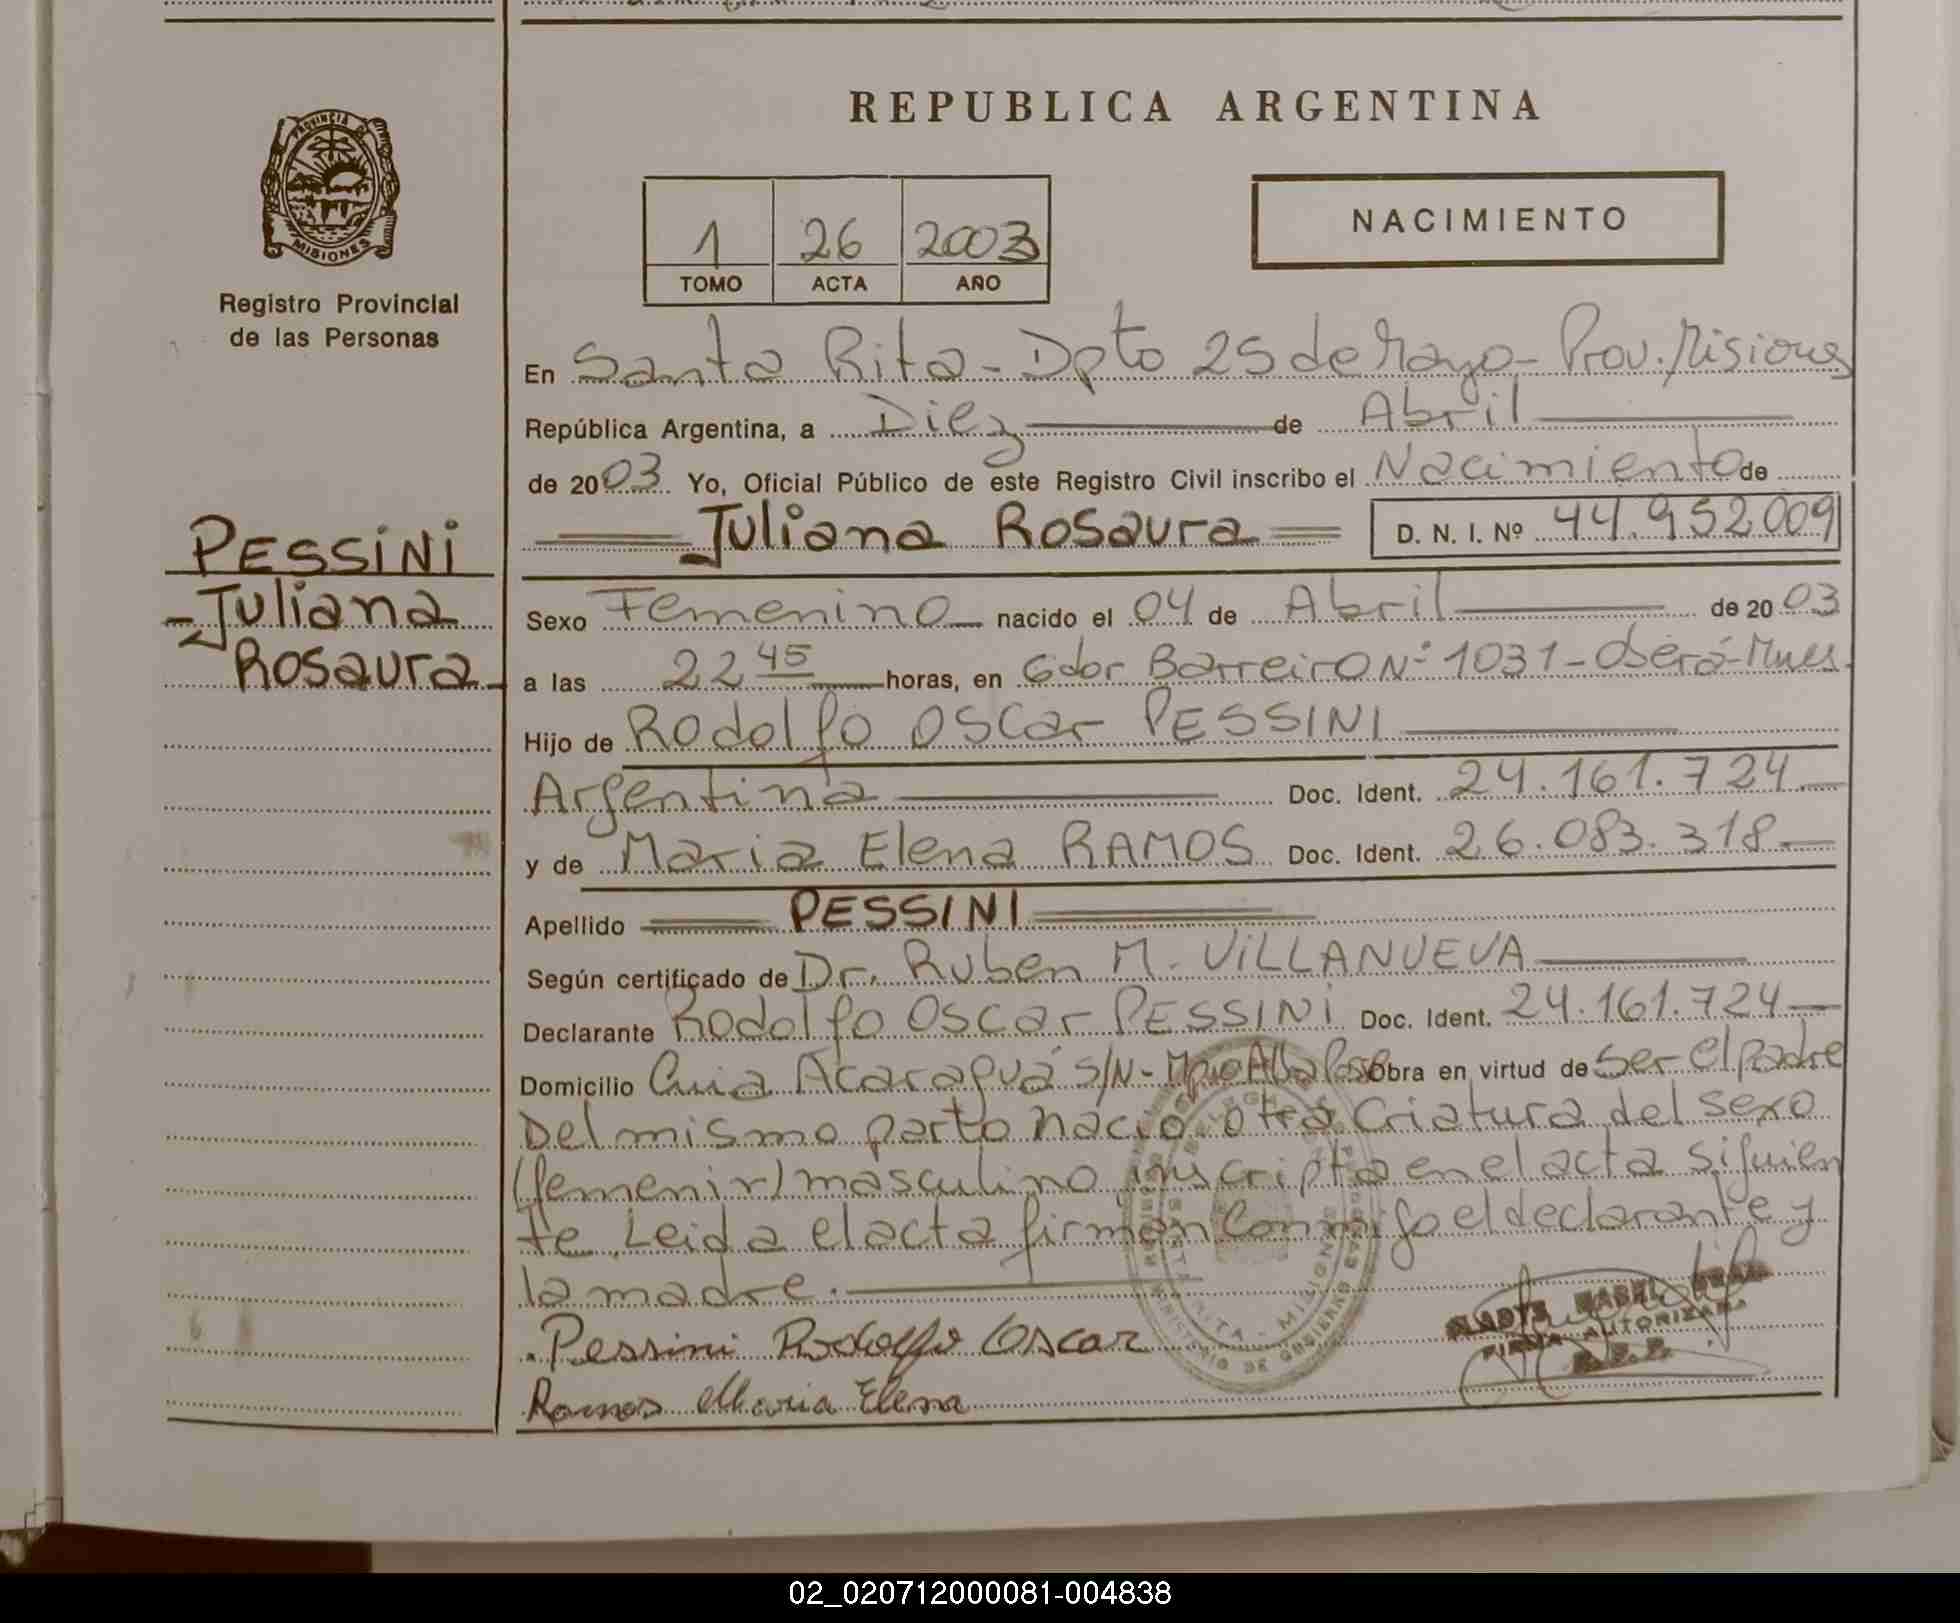 REPUBLICA ARGENTINA
PROVINCIA DE
MISIONES
Registro Provincial
de las Personas
1 26 2003
TOMO ACTA AÑO
NACIMIENTO
En Santa Rita - Dpto 25 de Mayo - Prov. Misiones
República Argentina, a Diez de Abril
de 2003 Yo, Oficial Público de este Registro Civil inscribo el Nacimiento de
Juliana Rosaura D. N. I. Nº 44.952009
PESSINI
Juliana
Rosaura
Sexo Femenino nacido el 04 de Abril de 2003
a las 22 45 horas, en Gdor Barreiro Nº 1031 - Oberá - Mnes
Hijo de Rodolfo Oscar PESSINI
Argentina Doc. Ident. 24.161.724
y de Maria Elena RAMOS Doc. Ident. 26.083.318
Apellido PESSINI
Según certificado de Dr. Ruben M. VILLANUEVA
Declarante Rodolfo Oscar PESSINI Doc. Ident. 24.161.724
Domicilio Cuia Acaraguá S/N - Mpio Alba Posse Obra en virtud de ser el padre
Del mismo parto nació otra criatura del sexo
(femenin) masculino, inscripta en el acta siguien
te Leida el acta firman conmigo el declarante y
la madre.
Pessini Rodolfo Oscar
Ramos Maria Elena
GLADYS MABEL
FIRMA AUTORIZADA
SANTA RITA - MISIONES
MINISTERIO DE GOBIERNO
02_020712000081-004838